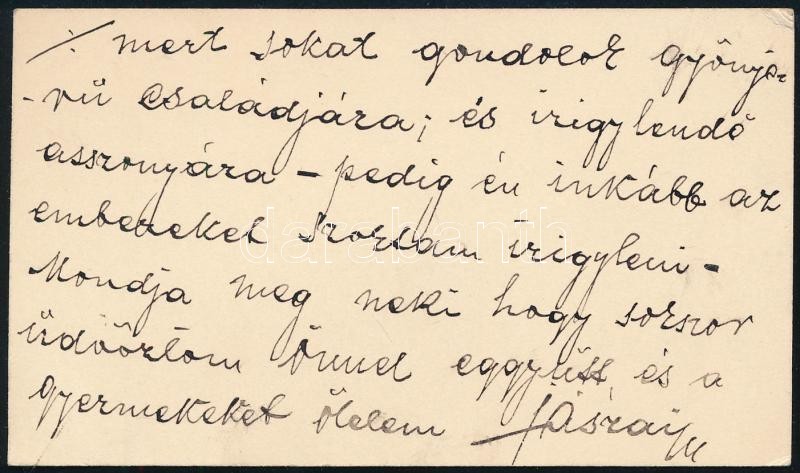 /. mert sokat gondolok gyönyö-
-rü családjára; és irigylendő
asszonyára – pedig én inkább az
embereket szoktam irigyleni –
Mondja meg neki hogy sokszor
üdvözlöm Önnel eggyütt és a
gyermekeket ölelem Jászai M
darabanth